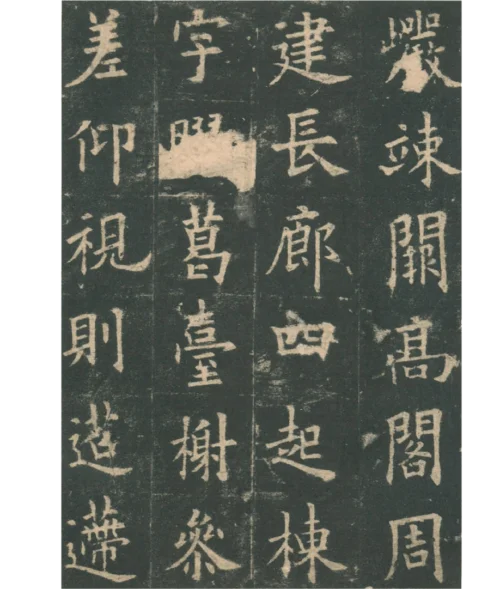 巖竦闕髙閣周
建長廊四起棟
宇葛臺榭叅
差仰視則迢遰